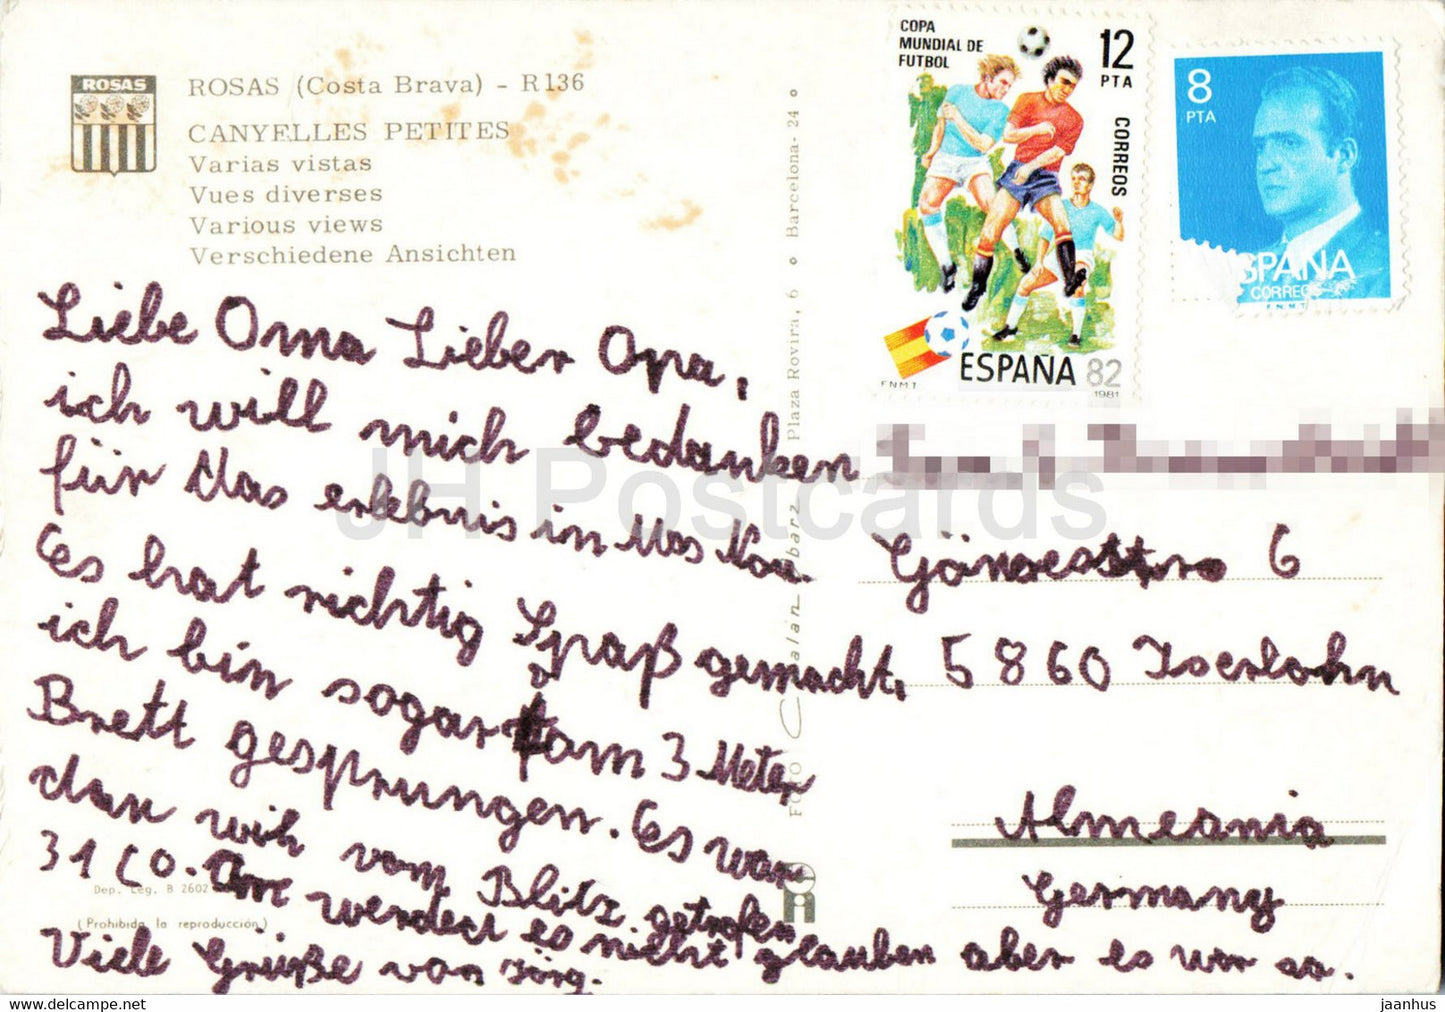 ROSAS
ROSAS (Costa Brava) - R136
CANYELLES PETITES
Varias vistas
Vues diverses
Various views
Verschiedene Ansichten
Liebe Oma Lieber Opa,
ich will mich bedanken
für das erlebnis in Mas Nou.
Es hat richtig Spaß gemacht.
ich bin sogar am 3 Meter
Brett gesprungen. Es war
dan wih vom Blitz getrofen
werdect es nicht glauben aber es war so.
Viele Grüße von Jörg.
Dep. Leg. B 2602
(Prohibida la reproducción)
FOTO Catalán Ibarz Plaza Rovira, 6 Barcelona-24
COPA
MUNDIAL DE
FUTBOL
12
PTA
CORREOS
ESPAÑA 82
FNMT
1981
8
PTA
ESPAÑA
CORREOS
F.N.M.T
Gänsestr 6
5860 Iserlohn
Almernia
Germany
JH Postcards
jaanhus — https://jhpostcards.com